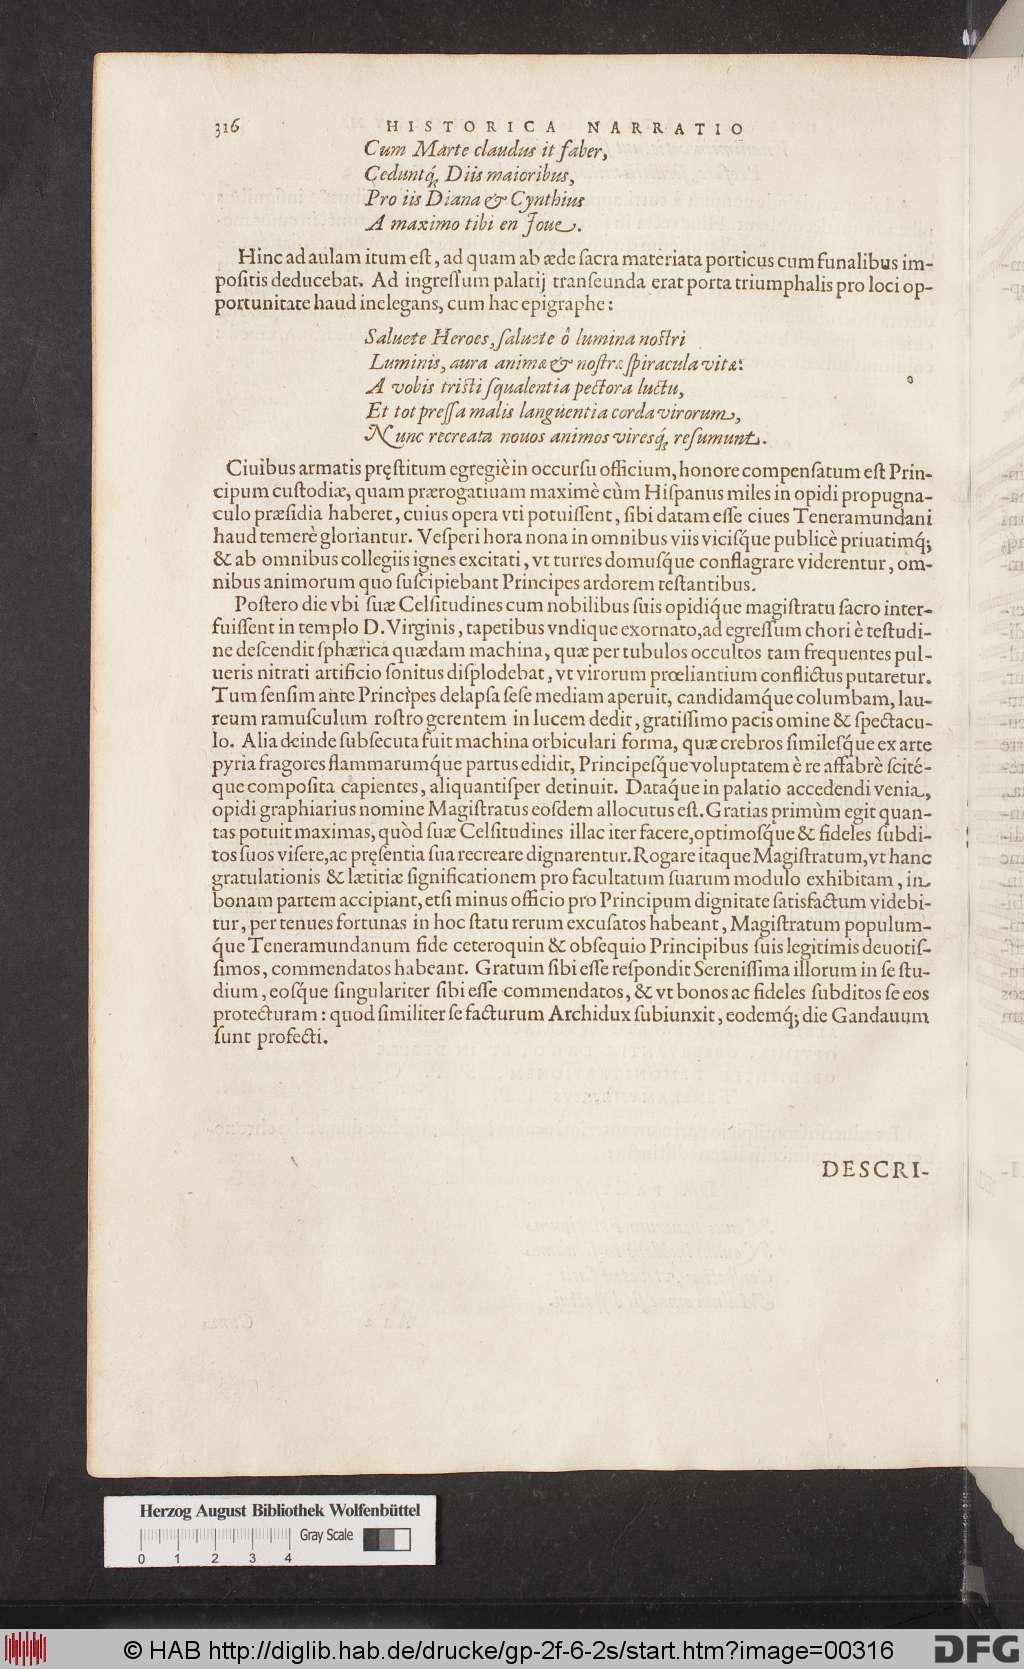 316 HISTORICA NARRATIO
Cum Marte claudus it faber,
Ceduntq́; Diis maioribus,
Pro iis Diana & Cynthius
A maximo tibi en Joue.
Hinc ad aulam itum eſt, ad quam ab æde ſacra materiata porticus cum funalibus im-
poſitis deducebat. Ad ingreſſum palatij tranſeunda erat porta triumphalis pro loci op-
portunitate haud inelegans, cum hac epigraphe:
Saluete Heroes, ſaluete ô lumina noſtri
Luminis, aura animæ & noſtræ ſpiracula vitæ:
A vobis triſti ſqualentia pectora luctu,
Et tot preſſa malis languentia corda virorum,
Nunc recreata nouos animos viresq́; reſumunt.
Ciuibus armatis pręſtitum egregiè in occurſu officium, honore compenſatum eſt Prin-
cipum cuſtodiæ, quam prærogatiuam maximè cùm Hiſpanus miles in opidi propugna-
culo præſidia haberet, cuius opera vti potuiſſent, ſibi datam eſſe ciues Teneramundani
haud temerè gloriantur. Veſperi hora nona in omnibus viis viciſq́ue publicè priuatimq́;
& ab omnibus collegiis ignes excitati, vt turres domuſq́ue conflagrare viderentur, om-
nibus animorum quo ſuſcipiebant Principes ardorem teſtantibus.
Poſtero die vbi ſuæ Celſitudines cum nobilibus ſuis opidiq́ue magiſtratu ſacro inter-
fuiſſent in templo D. Virginis, tapetibus vndique exornato, ad egreſſum chori è teſtudi-
ne deſcendit ſphærica quædam machina, quæ per tubulos occultos tam frequentes pul-
ueris nitrati artificio ſonitus diſplodebat, vt virorum prœliantium conflictus putaretur.
Tum ſenſim ante Principes delapſa ſeſe mediam aperuit, candidamq́ue columbam, lau-
reum ramuſculum roſtro gerentem in lucem dedit, gratiſſimo pacis omine & ſpectacu-
lo. Alia deinde ſubſecuta fuit machina orbiculari forma, quæ crebros ſimileſq́ue ex arte
pyria fragores flammarumq́ue partus edidit, Principeſq́ue voluptatem è re affabrè ſcité-
que compoſita capientes, aliquantiſper detinuit. Datáque in palatio accedendi venia,
opidi graphiarius nomine Magiſtratus eoſdem allocutus eſt. Gratias primùm egit quan-
tas potuit maximas, quòd ſuæ Celſitudines illac iter facere, optimoſq́ue & fideles ſubdi-
tos ſuos viſere, ac pręſentia ſua recreare dignarentur. Rogare itaque Magiſtratum, vt hanc
gratulationis & lætitiæ ſignificationem pro facultatum ſuarum modulo exhibitam, in
bonam partem accipiant, etſi minus officio pro Principum dignitate ſatisfactum videbi-
tur, per tenues fortunas in hoc ſtatu rerum excuſatos habeant, Magiſtratum populum-
q́ue Teneramundanum fide ceteroquin & obſequio Principibus ſuis legitimis deuotiſ-
ſimos, commendatos habeant. Gratum ſibi eſſe reſpondit Sereniſſima illorum in ſe ſtu-
dium, eoſq́ue ſingulariter ſibi eſſe commendatos, & vt bonos ac fideles ſubditos ſe eos
protecturam: quod ſimiliter ſe facturum Archidux ſubiunxit, eodemq́; die Gandauum
ſunt profecti.
DESCRI-
Herzog August Bibliothek Wolfenbüttel
Gray Scale
0 1 2 3 4
© HAB http://diglib.hab.de/drucke/gp-2f-6-2s/start.htm?image=00316
DFG